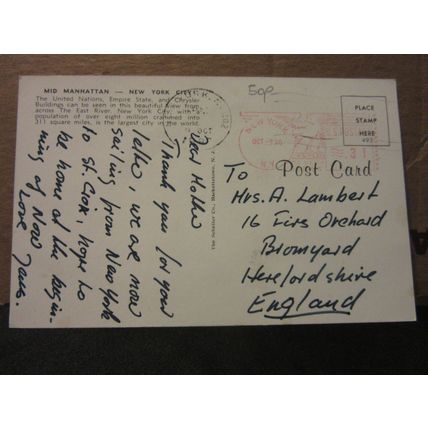 MID MANHATTAN — NEW YORK CITY
The United Nations, Empire State, and Chrysler
Buildings can be seen in this beautiful view from
across The East River. New York City, with a
population of over eight million crammed into
311 square miles, is the largest city in the world.
Dear Mother
Thank you for your
letter, we are now
sailing from New York
to St. Croix. hope to
be home at the begin-
ning of Nov
Love
The Schaller Co., Barkettstown, N. J.
50p
PLACE
STAMP
HERE
NEW YORK
OCT
N.Y.
31
Post Card
To
Mrs. A. Lambert
16 Firs Orchard
Bromyard
Herefordshire
England